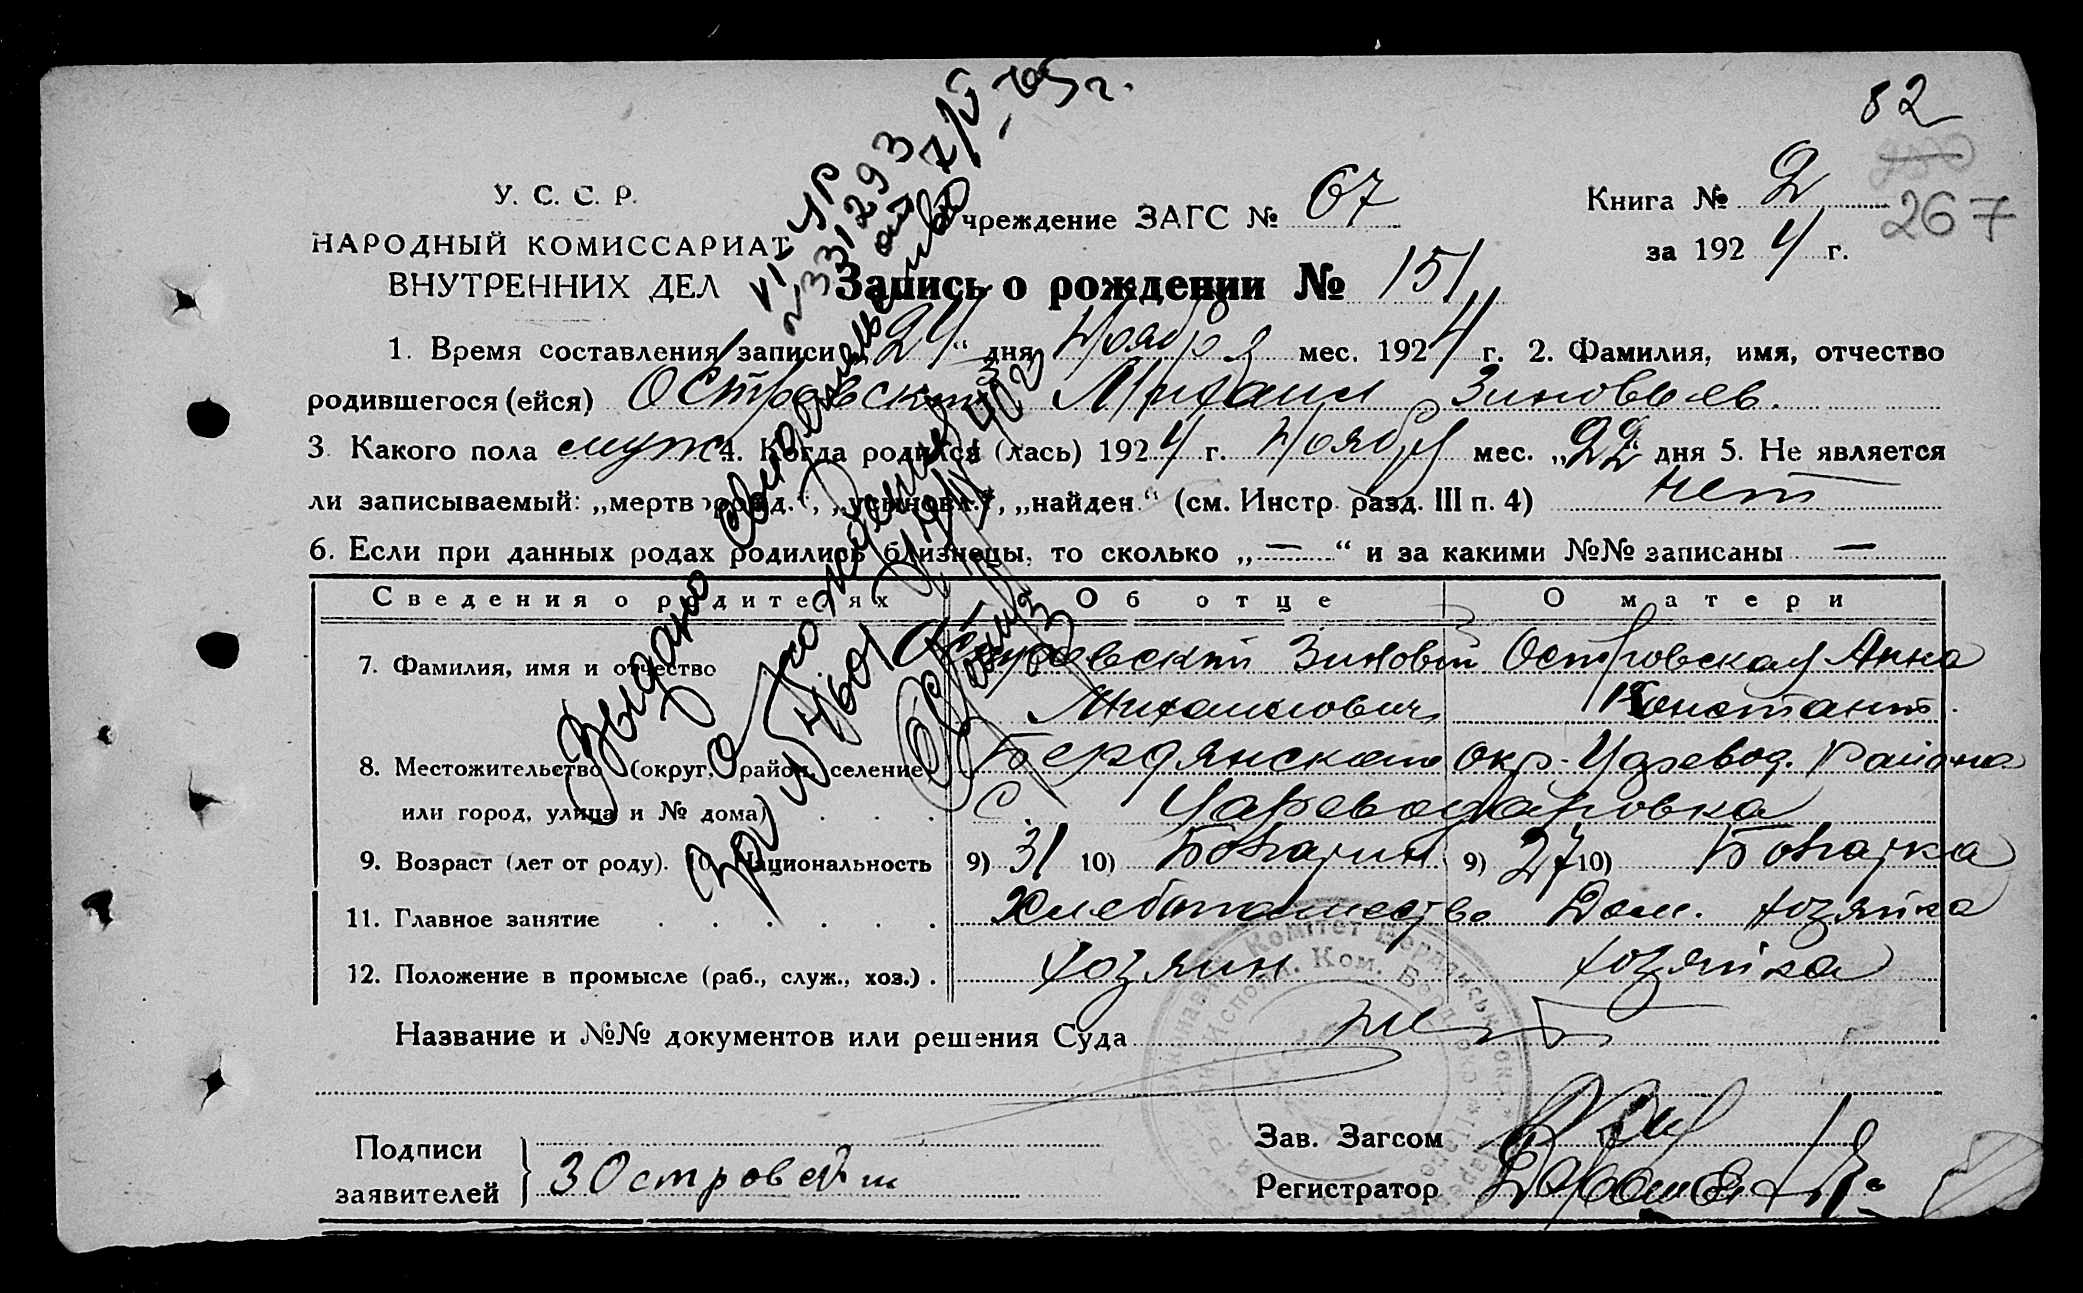 82
У. С. С. Р.
НАРОДНЫЙ КОМИССАРИАТ
ВНУТРЕННИХ ДЕЛ
Учреждение ЗАГС № 67
Книга № 2
267
за 1924 г.
Запись о рождении № 151
1. Время составления записи „24“ дня Ноября мес. 1924 г. 2. Фамилия, имя, отчество
родившегося (ейся) Островский Михаил Зиновьев.
3. Какого пола муж 4. Когда родился (лась) 1924 г. Ноября мес. „22“ дня 5. Не является
ли записываемый: „мертворожд.“, „усыновл.“, „найден.“ (см. Инстр. разд. III п. 4) нет
6. Если при данных родах родились близнецы, то сколько „—“ и за какими №№ записаны —
Сведения о родителях Об отце О матери
7. Фамилия, имя и отчество Островский Зиновий Островская Анна
Михаилович Констант.
8. Местожительство (округ, район, селение Бердянского окр. Царевод. района
или город, улица и № дома) . . . С. Цареводаровка
9. Возраст (лет от роду). 10. Национальность 9) 31 10) Болгарин 9) 27 10) Болгарка
11. Главное занятие . . . . . . Хлебопашество Дом. хозяйка
12. Положение в промысле (раб., служ., хоз.) . хозяин хозяйка
Название и №№ документов или решения Суда нет
Подписи
заявителей
ЗОстровский
Зав. Загсом
Регистратор
Выдано свидетельство
о рождении
VI УР
233293